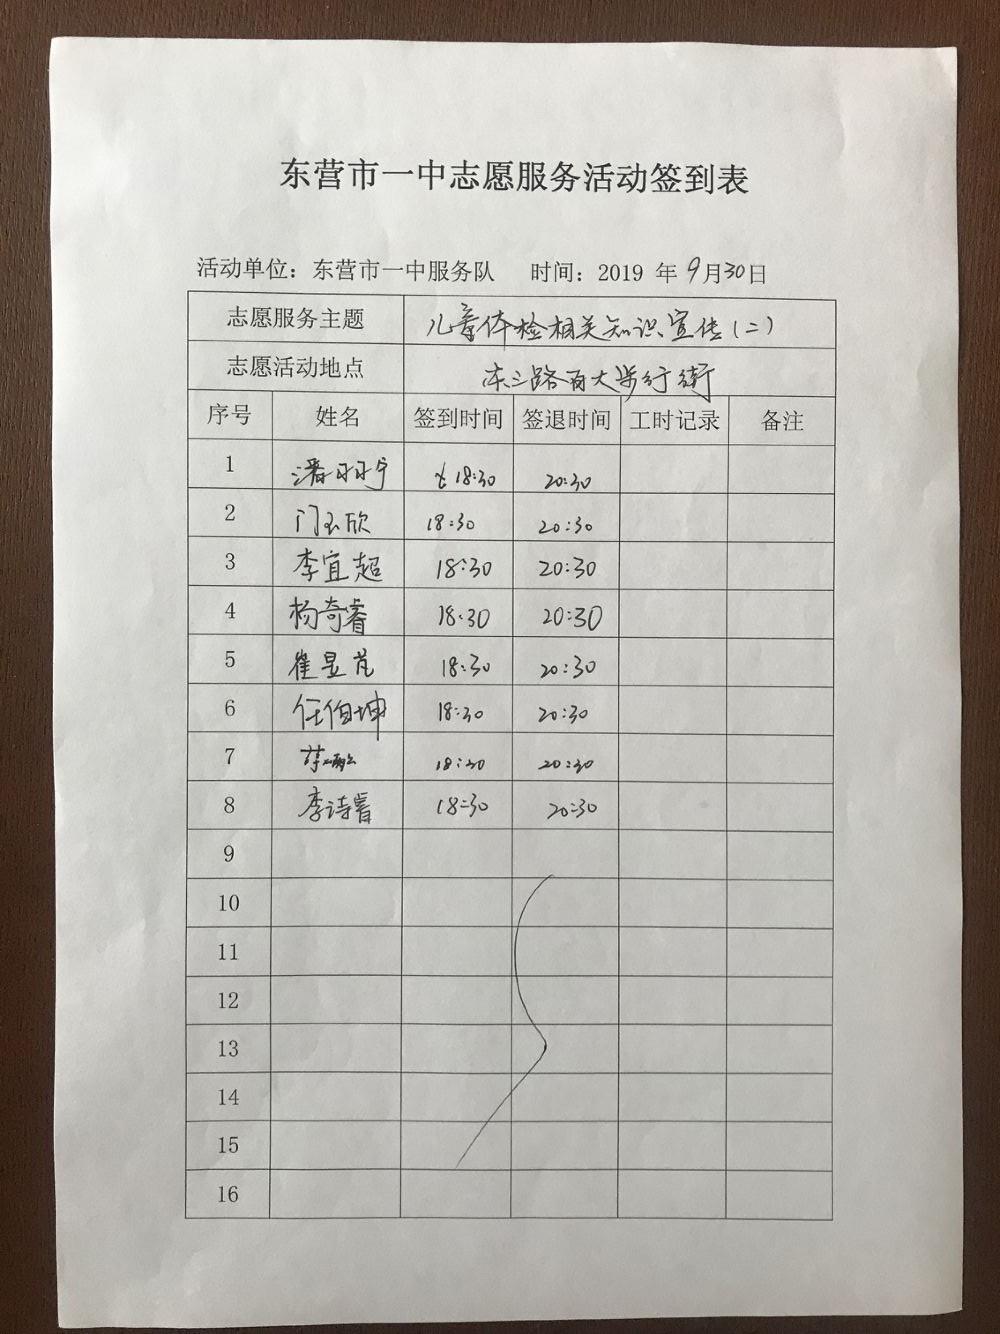 东营市一中志愿服务活动签到表
活动单位：东营市一中服务队 时间：2019 年 9月30日
志愿服务主题 儿童体检相关知识宣传（二）
志愿活动地点 东三路百大步行街
序号 姓名 签到时间 签退时间 工时记录 备注
1 潘羽宁 18:30 20:30
2 门玉欣 18:30 20:30
3 李宜超 18:30 20:30
4 杨奇睿 18:30 20:30
5 崔昱芃 18:30 20:30
6 任伯坤 18:30 20:30
7 18:30 20:30
8 李诗睿 18:30 20:30
9
10
11
12
13
14
15
16